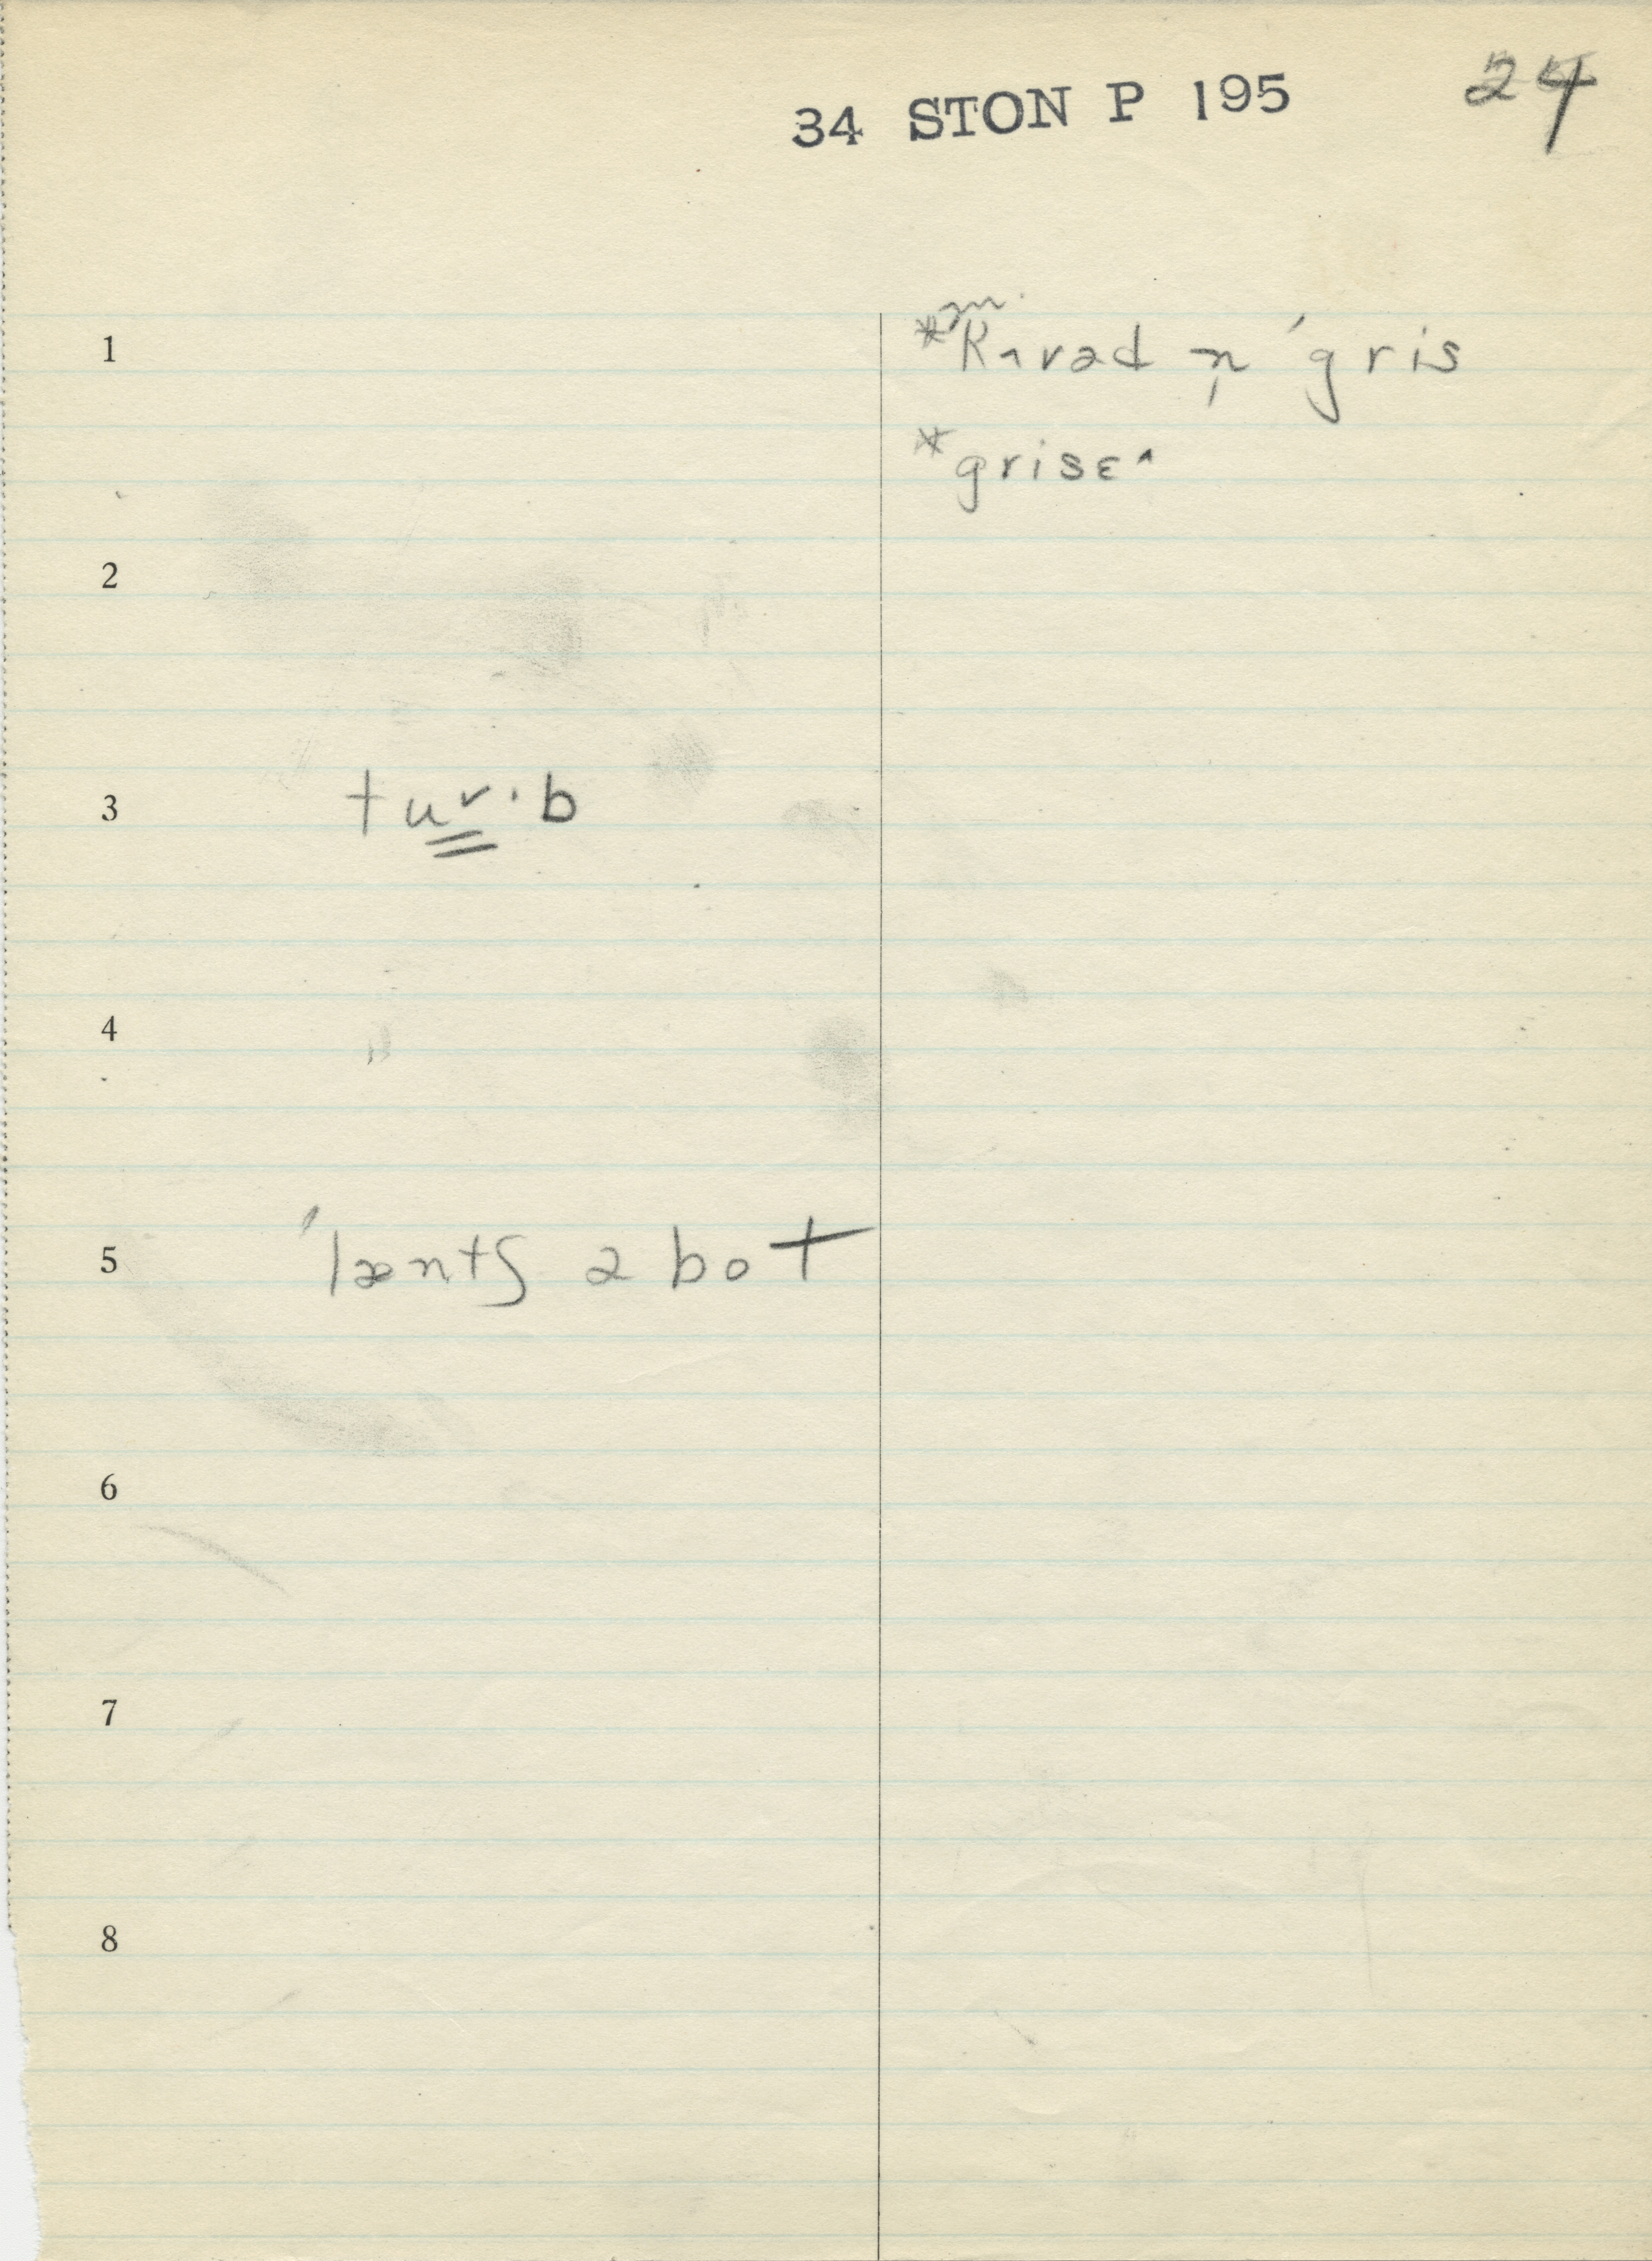 34 STON P 195 24
1
*kʌvəd n̩ ˈgris
*grisɛ^
2
3 tuɤ·b
4
5 ˈlæntʃ ə bot
6
7
8